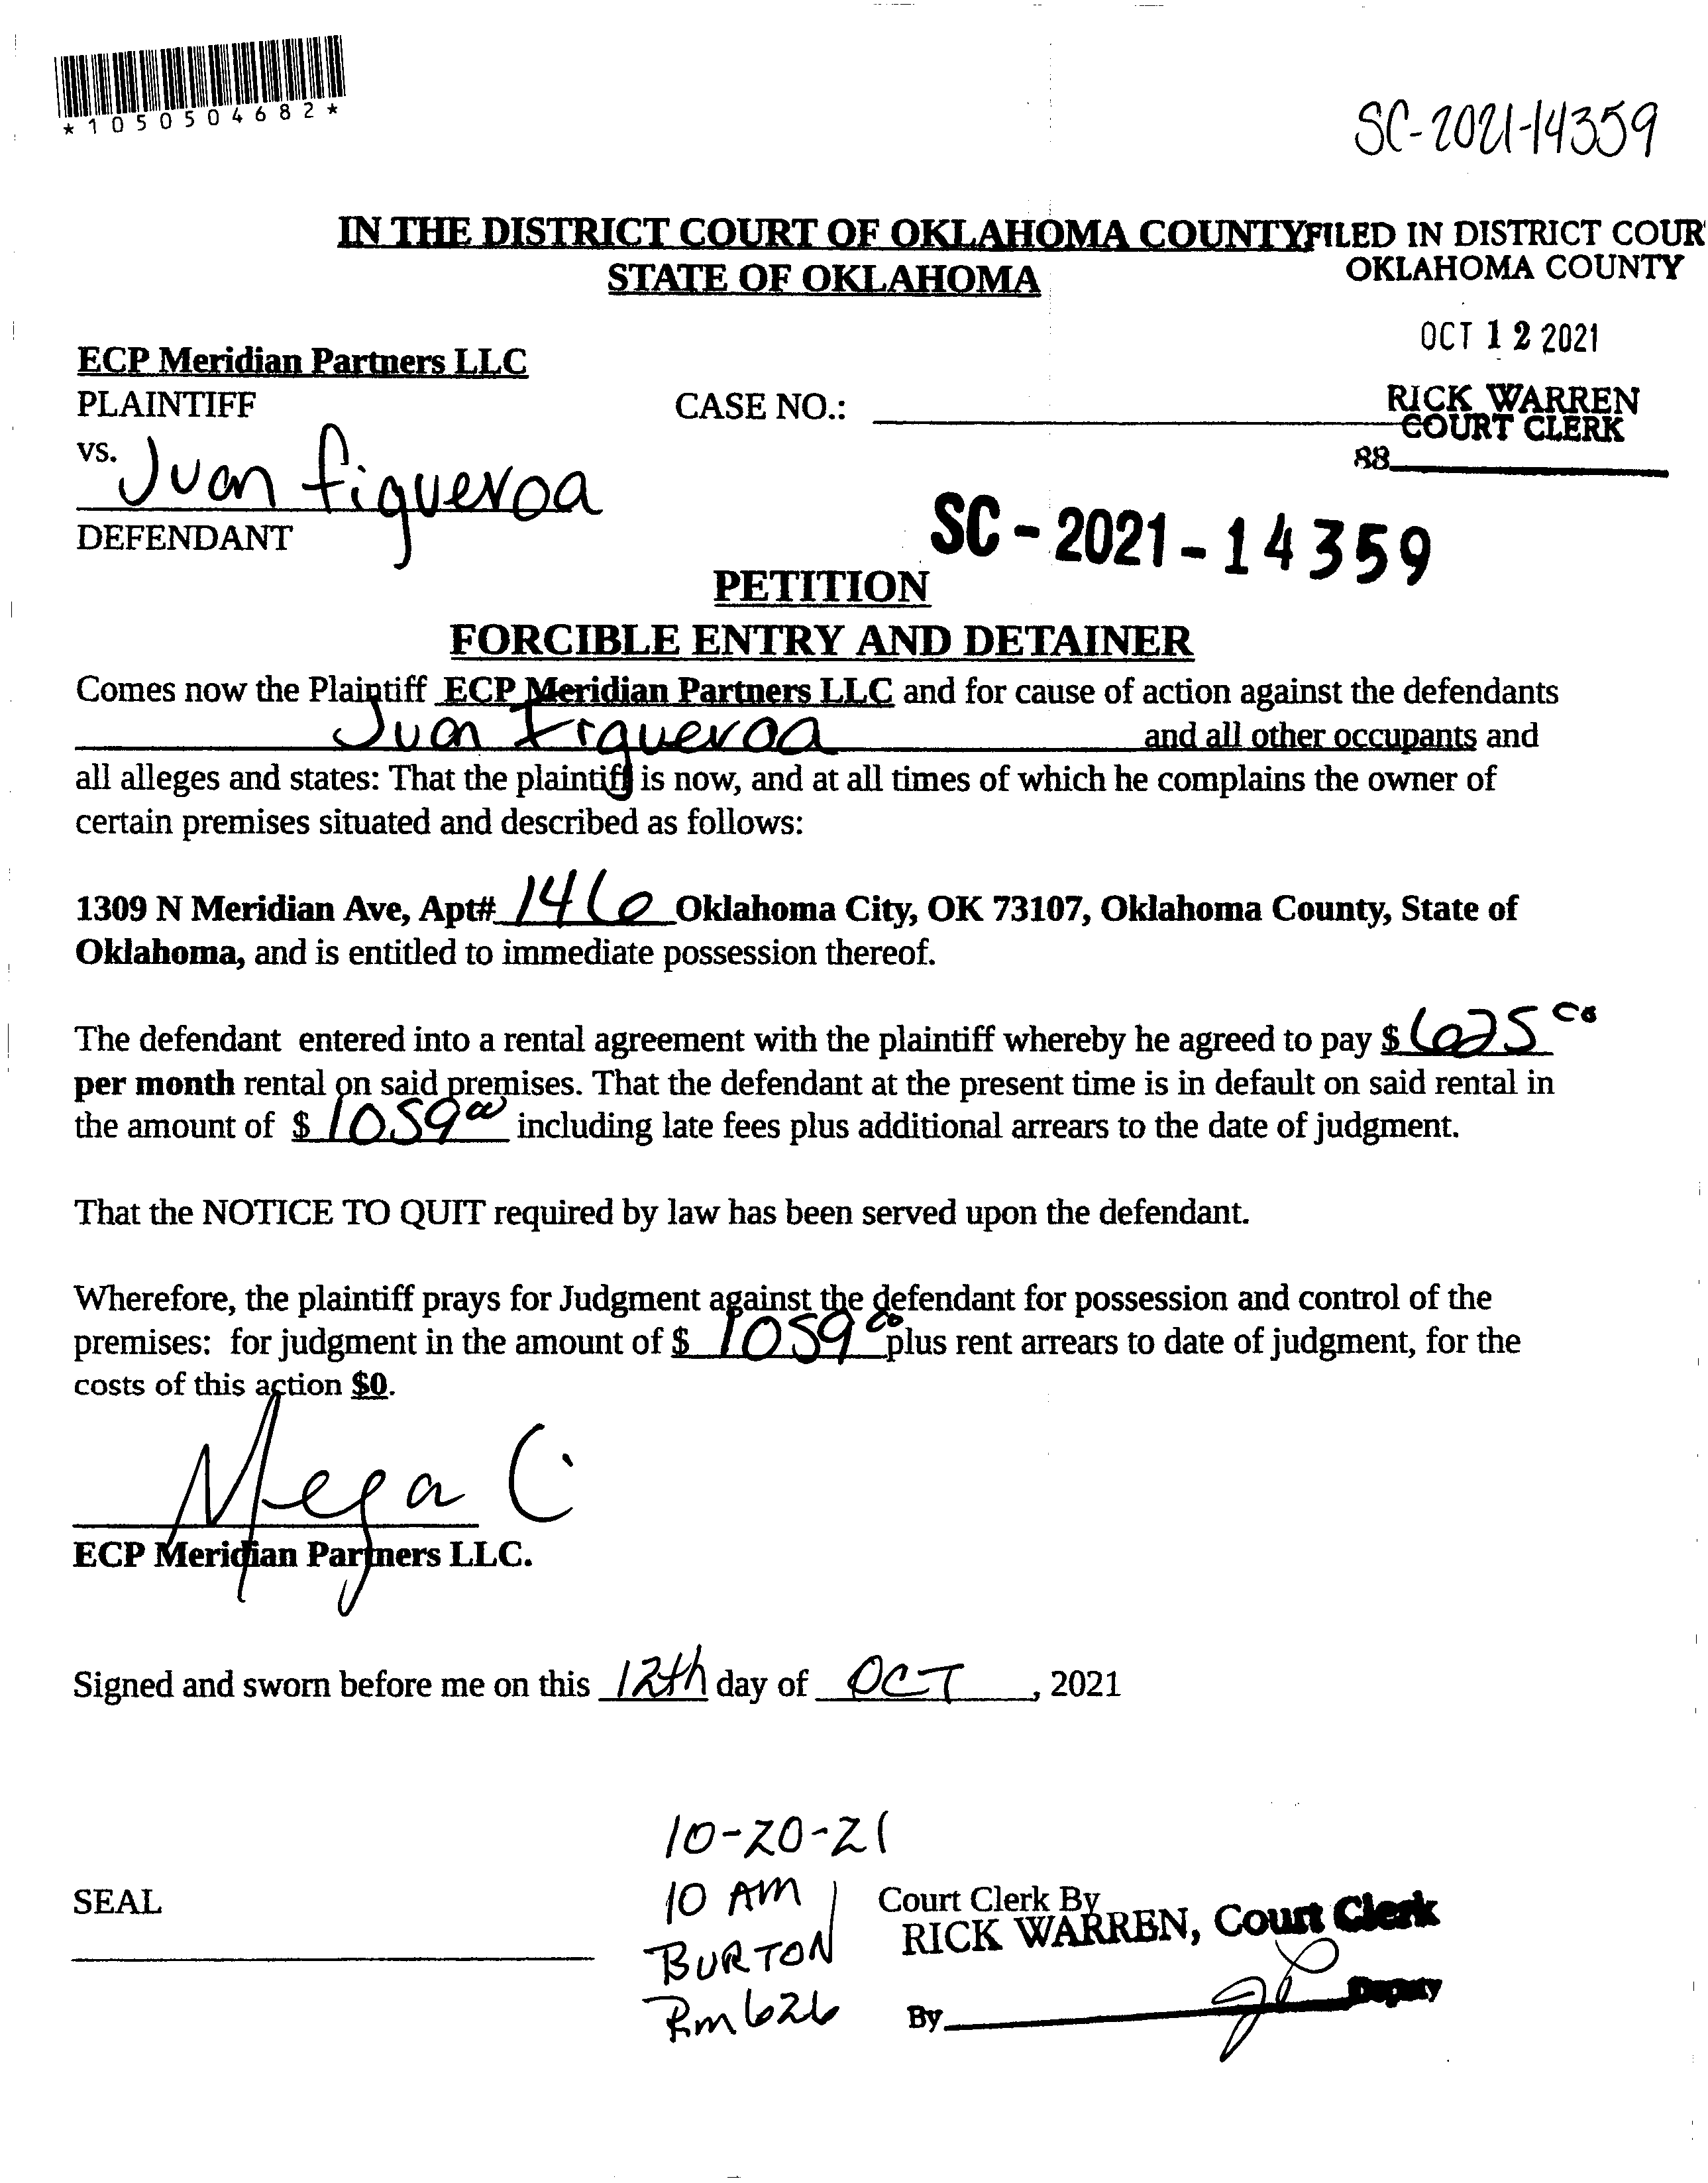 *1050504682*
SC-2021-14359
IN THE DISTRICT COURT OF OKLAHOMA COUNTY
STATE OF OKLAHOMA
FILED IN DISTRICT COUR
OKLAHOMA COUNTY
OCT 12 2021
RICK WARREN
COURT CLERK
88
ECP Meridian Partners LLC
PLAINTIFF
CASE NO.:
vs. Juan Figueroa
DEFENDANT
SC-2021-14359
PETITION
FORCIBLE ENTRY AND DETAINER
Comes now the Plaintiff ECP Meridian Partners LLC and for cause of action against the defendants
Juan Figueroa and all other occupants and
all alleges and states: That the plaintiff is now, and at all times of which he complains the owner of
certain premises situated and described as follows:
1309 N Meridian Ave, Apt# 146 Oklahoma City, OK 73107, Oklahoma County, State of
Oklahoma, and is entitled to immediate possession thereof.
The defendant entered into a rental agreement with the plaintiff whereby he agreed to pay $ 625 00
per month rental on said premises. That the defendant at the present time is in default on said rental in
the amount of $ 1059 00 including late fees plus additional arrears to the date of judgment.
That the NOTICE TO QUIT required by law has been served upon the defendant.
Wherefore, the plaintiff prays for Judgment against the defendant for possession and control of the
premises: for judgment in the amount of $ 1059 00 plus rent arrears to date of judgment, for the
costs of this action $0.
ECP Meridian Partners LLC.
Signed and sworn before me on this 12th day of OCT, 2021
10-20-21
10 AM
BURTON
Rm 626
SEAL
Court Clerk By
RICK WARREN, Court Clerk
By Deputy